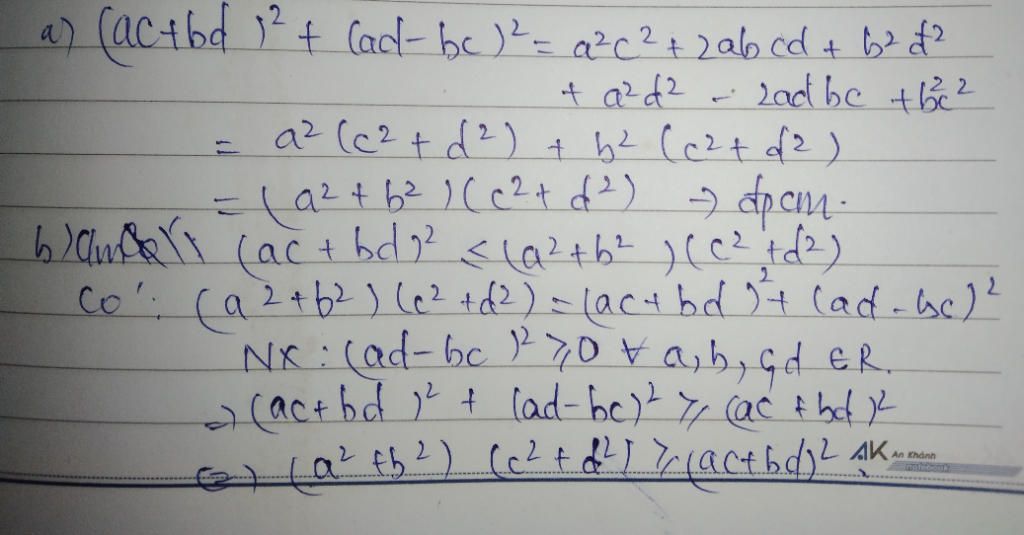 a) (ac+bd)² + (ad-bc)² = a²c² + 2abcd + b²d²
+ a²d² - 2adbc + b²c²
= a²(c²+d²) + b²(c²+d²)
= (a²+b²)(c²+d²) → dpcm.
b) (ac+bd)² ≤ (a²+b²)(c²+d²)
Có: (a²+b²)(c²+d²) = (ac+bd)² + (ad-bc)²
NX: (ad-bc)² ≥ 0 ∀ a, b, c, d ∈ R.
=> (ac+bd)² + (ad-bc)² ≥ (ac+bd)²
<=> (a²+b²) (c²+d²) ≥ (ac+bd)².
AK An Khánh
notebook